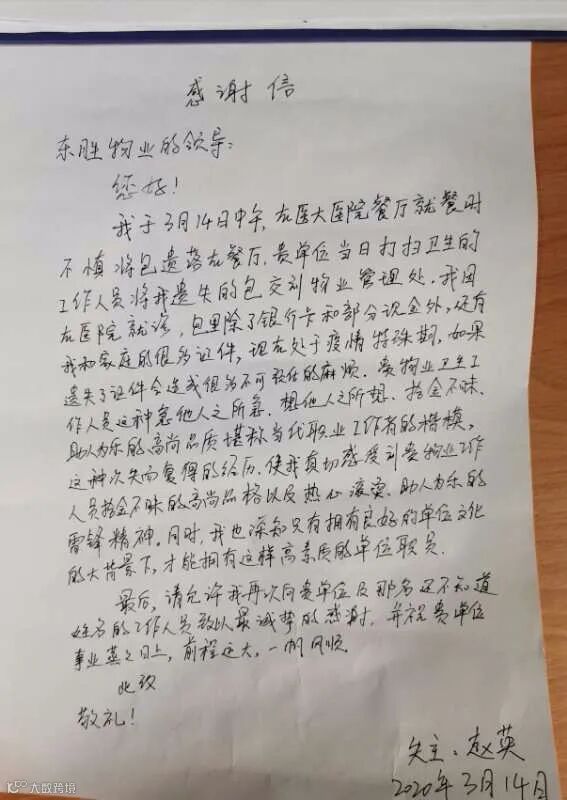 感谢信
东胜物业的领导:
您好!
我于3月14日中午,在医大医院餐厅就餐时
不慎将包遗落在餐厅,贵单位当日打扫卫生的
工作人员将我遗失的包交到物业管理处。我因
在医院就诊,包里除了银行卡和部分现金外,还有
我和家庭的很多证件,现在处于疫情特殊期,如果
遗失了证件会造成很多不可胜任的麻烦。贵物业卫生工
作人员这种急他人之所急,想他人之所想,拾金不昧,
助人为乐的高尚品质堪称当代职业工作者的楷模,
这种次失而复得的经历,使我真切感受到贵物业工作
人员拾金不昧的高尚品格以及热心诚实、助人为乐的
雷锋精神。同时,我也深知只有拥有良好的单位文化
的大背景下,才能拥有这样高素质的单位职员。
最后,请允许我再次向贵单位及那名还不知道
姓名的工作人员致以最诚挚的感谢,并祝贵单位
事业蒸蒸日上,前程远大,一帆风顺。
此致
敬礼!
失主:赵英
2020年3月14日
大数跨境